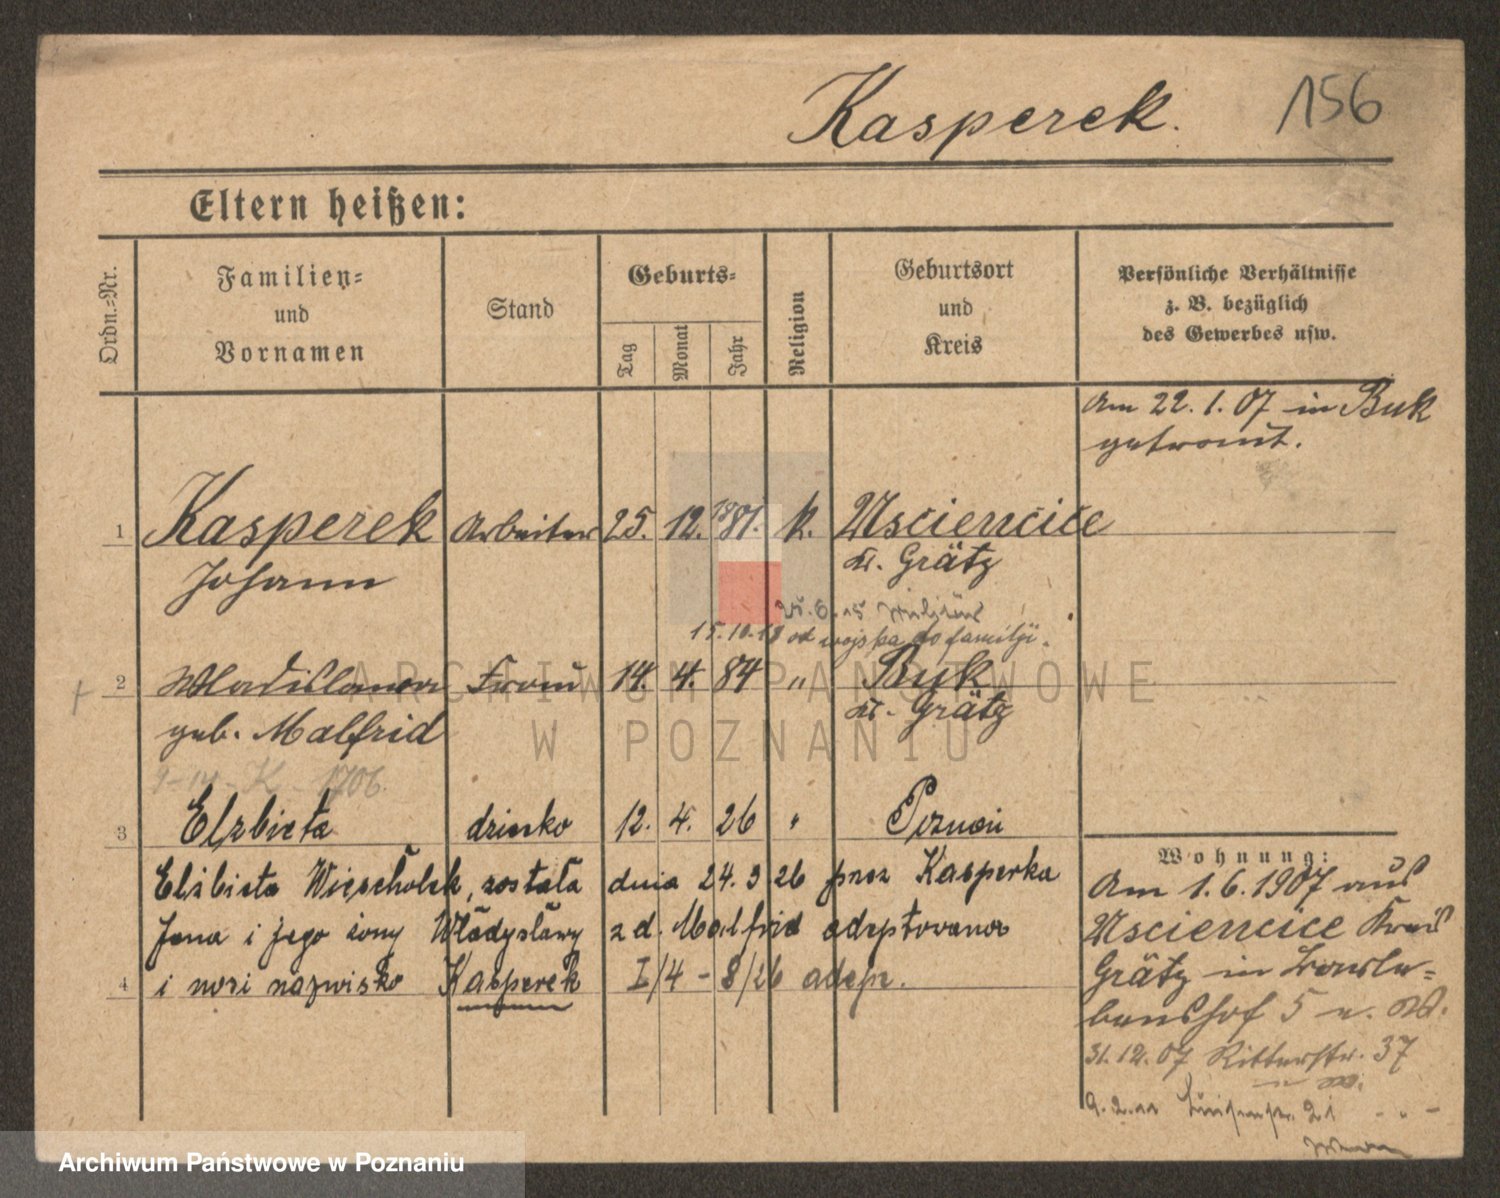 Kasperek. 156
Eltern heißen:
Ordn.-Nr.
Familien-
und
Vornamen
Stand
Geburts-
Tag
Monat
Jahr
Religion
Geburtsort
und
Kreis
Persönliche Verhältnisse
z. B. bezüglich
des Gewerbes usw.
Am 22. 1. 07 in Buk
getraut.
1 Kasperek Arbeiter 25. 12. 1881. k. Usciencice
Johann Kr. Grätz
25. 6. 15
15.10.18 od wojska do familji.
2 Wladislawa Frau 14. 4. 84 " Buk
geb. Malfrid Kr. Grätz
K 1706
3 Elzbieta dziecko 12. 4. 26 " Poznań
Elżbieta Wiescholek, została dnia 24. 9 26 przez Kasperka
Jana i jego żony Władysławy zd. Malfrid adoptowana
4 i nosi nazwisko Kasperek I/4 - 8/26 adopc.
Wohnung:
Am 1. 6. 1907 aus
Usciencice Kreis
Grätz in
5
31. 12. 07 Ritterstr. 37
9. 2. 11 21
ARCHIWUM PAŃSTWOWE
W POZNANIU
Archiwum Państwowe w Poznaniu